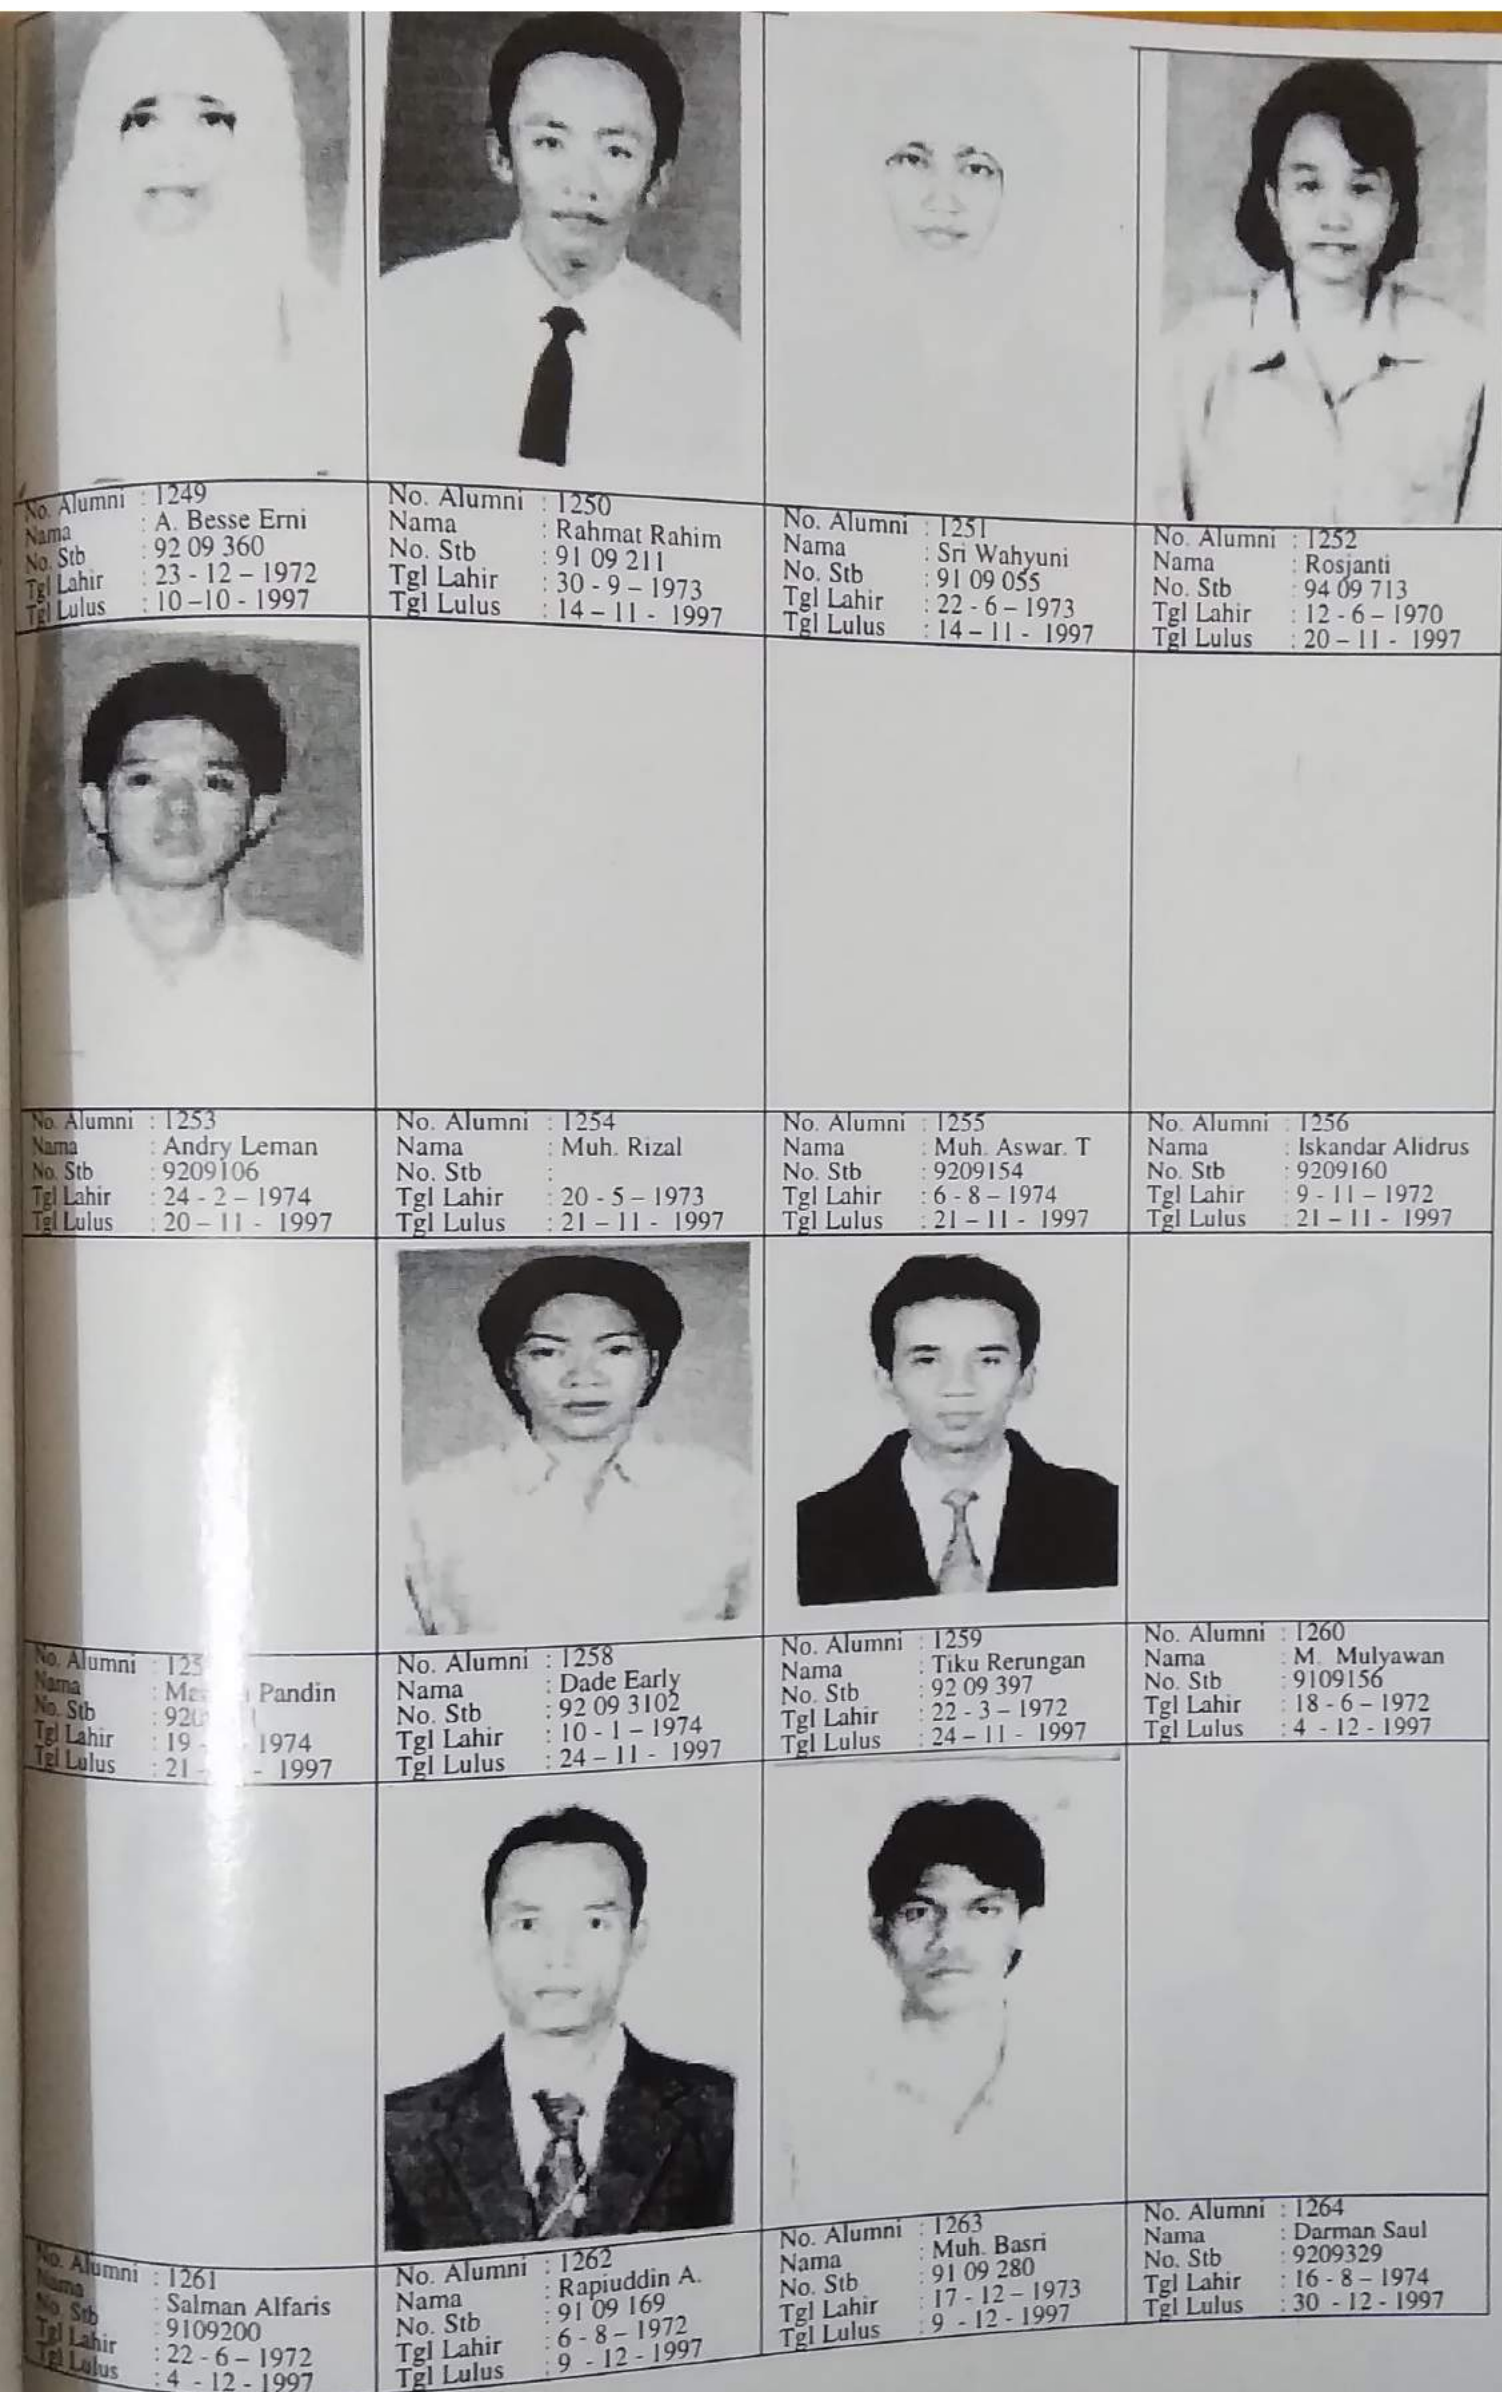 No. Alumni : 1249
Nama : A. Besse Erni
No. Stb : 92 09 360
Tgl Lahir : 23 - 12 – 1972
Tgl Lulus : 10 –10 - 1997
No. Alumni : 1250
Nama : Rahmat Rahim
No. Stb : 91 09 211
Tgl Lahir : 30 - 9 – 1973
Tgl Lulus : 14 – 11 - 1997
No. Alumni : 1251
Nama : Sri Wahyuni
No. Stb : 91 09 055
Tgl Lahir : 22 - 6 – 1973
Tgl Lulus : 14 – 11 - 1997
No. Alumni : 1252
Nama : Rosjanti
No. Stb : 94 09 713
Tgl Lahir : 12 - 6 – 1970
Tgl Lulus : 20 – 11 - 1997
No. Alumni : 1253
Nama : Andry Leman
No. Stb : 9209106
Tgl Lahir : 24 - 2 – 1974
Tgl Lulus : 20 – 11 - 1997
No. Alumni : 1254
Nama : Muh. Rizal
No. Stb :
Tgl Lahir : 20 - 5 – 1973
Tgl Lulus : 21 – 11 - 1997
No. Alumni : 1255
Nama : Muh. Aswar. T
No. Stb : 9209154
Tgl Lahir : 6 - 8 – 1974
Tgl Lulus : 21 – 11 - 1997
No. Alumni : 1256
Nama : Iskandar Alidrus
No. Stb : 9209160
Tgl Lahir : 9 - 11 – 1972
Tgl Lulus : 21 – 11 - 1997
No. Alumni :
Nama : Pandin
No. Stb :
Tgl Lahir : 19 - 1974
Tgl Lulus : 21 - - 1997
No. Alumni : 1258
Nama : Dade Early
No. Stb : 92 09 3102
Tgl Lahir : 10 - 1 – 1974
Tgl Lulus : 24 – 11 - 1997
No. Alumni : 1259
Nama : Tiku Rerungan
No. Stb : 92 09 397
Tgl Lahir : 22 - 3 – 1972
Tgl Lulus : 24 – 11 - 1997
No. Alumni : 1260
Nama : M. Mulyawan
No. Stb : 9109156
Tgl Lahir : 18 - 6 – 1972
Tgl Lulus : 4 - 12 - 1997
No. Alumni : 1261
Nama : Salman Alfaris
No. Stb : 9109200
Tgl Lahir : 22 - 6 – 1972
Tgl Lulus : 4 - 12 - 1997
No. Alumni : 1262
Nama : Rapiuddin A.
No. Stb : 91 09 169
Tgl Lahir : 6 - 8 – 1972
Tgl Lulus : 9 - 12 - 1997
No. Alumni : 1263
Nama : Muh. Basri
No. Stb : 91 09 280
Tgl Lahir : 17 - 12 – 1973
Tgl Lulus : 9 - 12 - 1997
No. Alumni : 1264
Nama : Darman Saul
No. Stb : 9209329
Tgl Lahir : 16 - 8 – 1974
Tgl Lulus : 30 - 12 - 1997